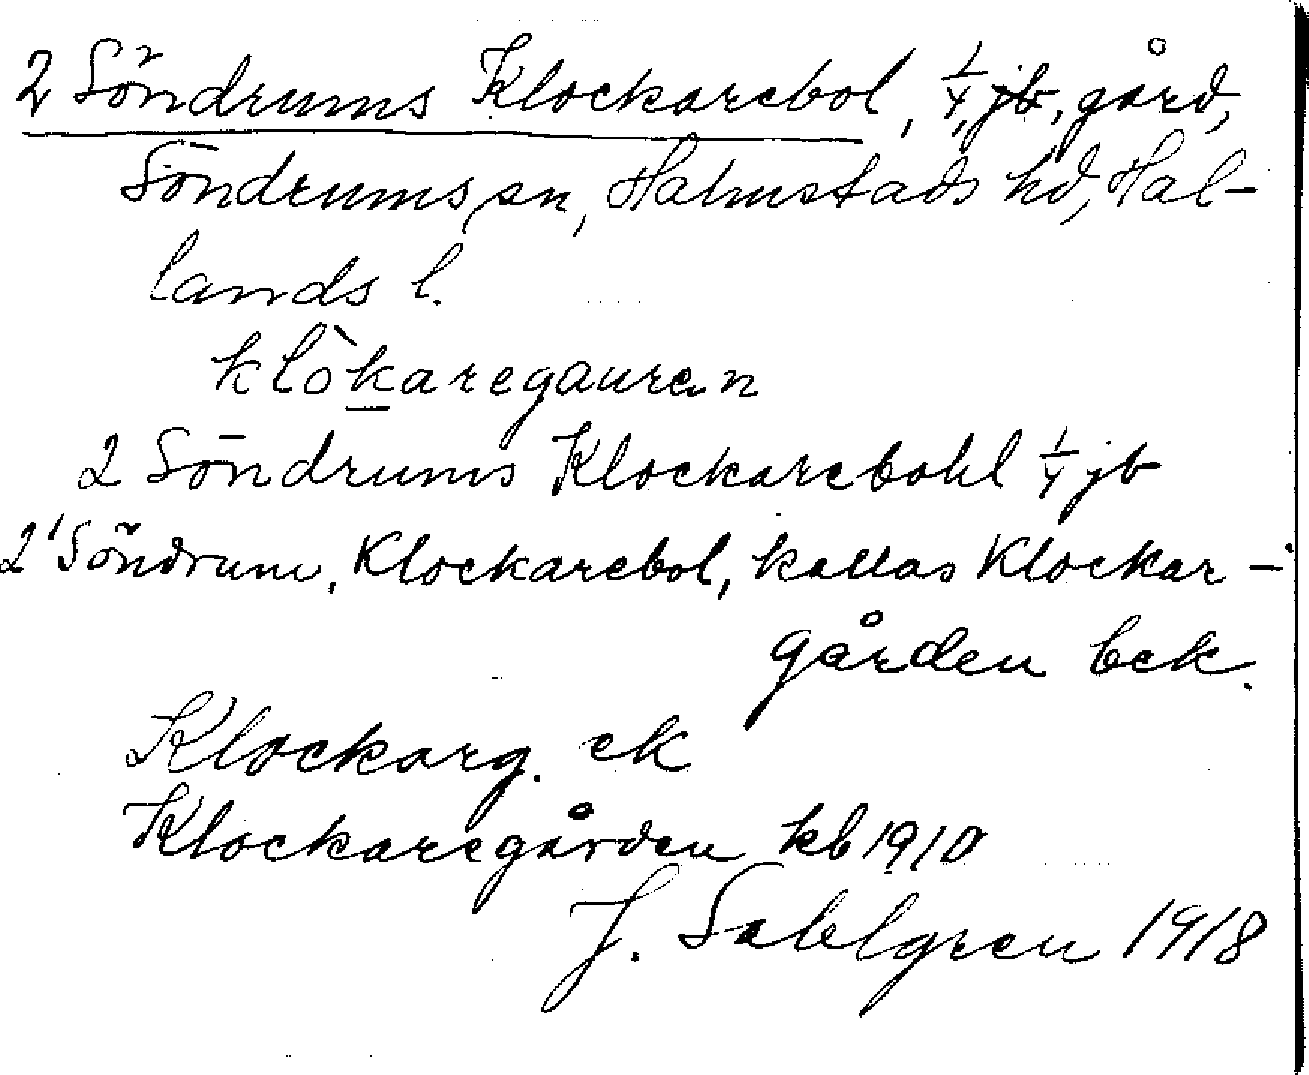 2 Söndrums Klockarebol, 1/4 jb, gård,
Söndrums sn, Halmstads hd, Hal-
lands l.
klòkaregauren
2 Söndrums Klockarebohl 1/4 jb
2¹ Söndrum, Klockarebol, kallas Klockar-
gården bek.
Klockarg. ek
Klockaregården kb 1910
J. Sahlgren 1918